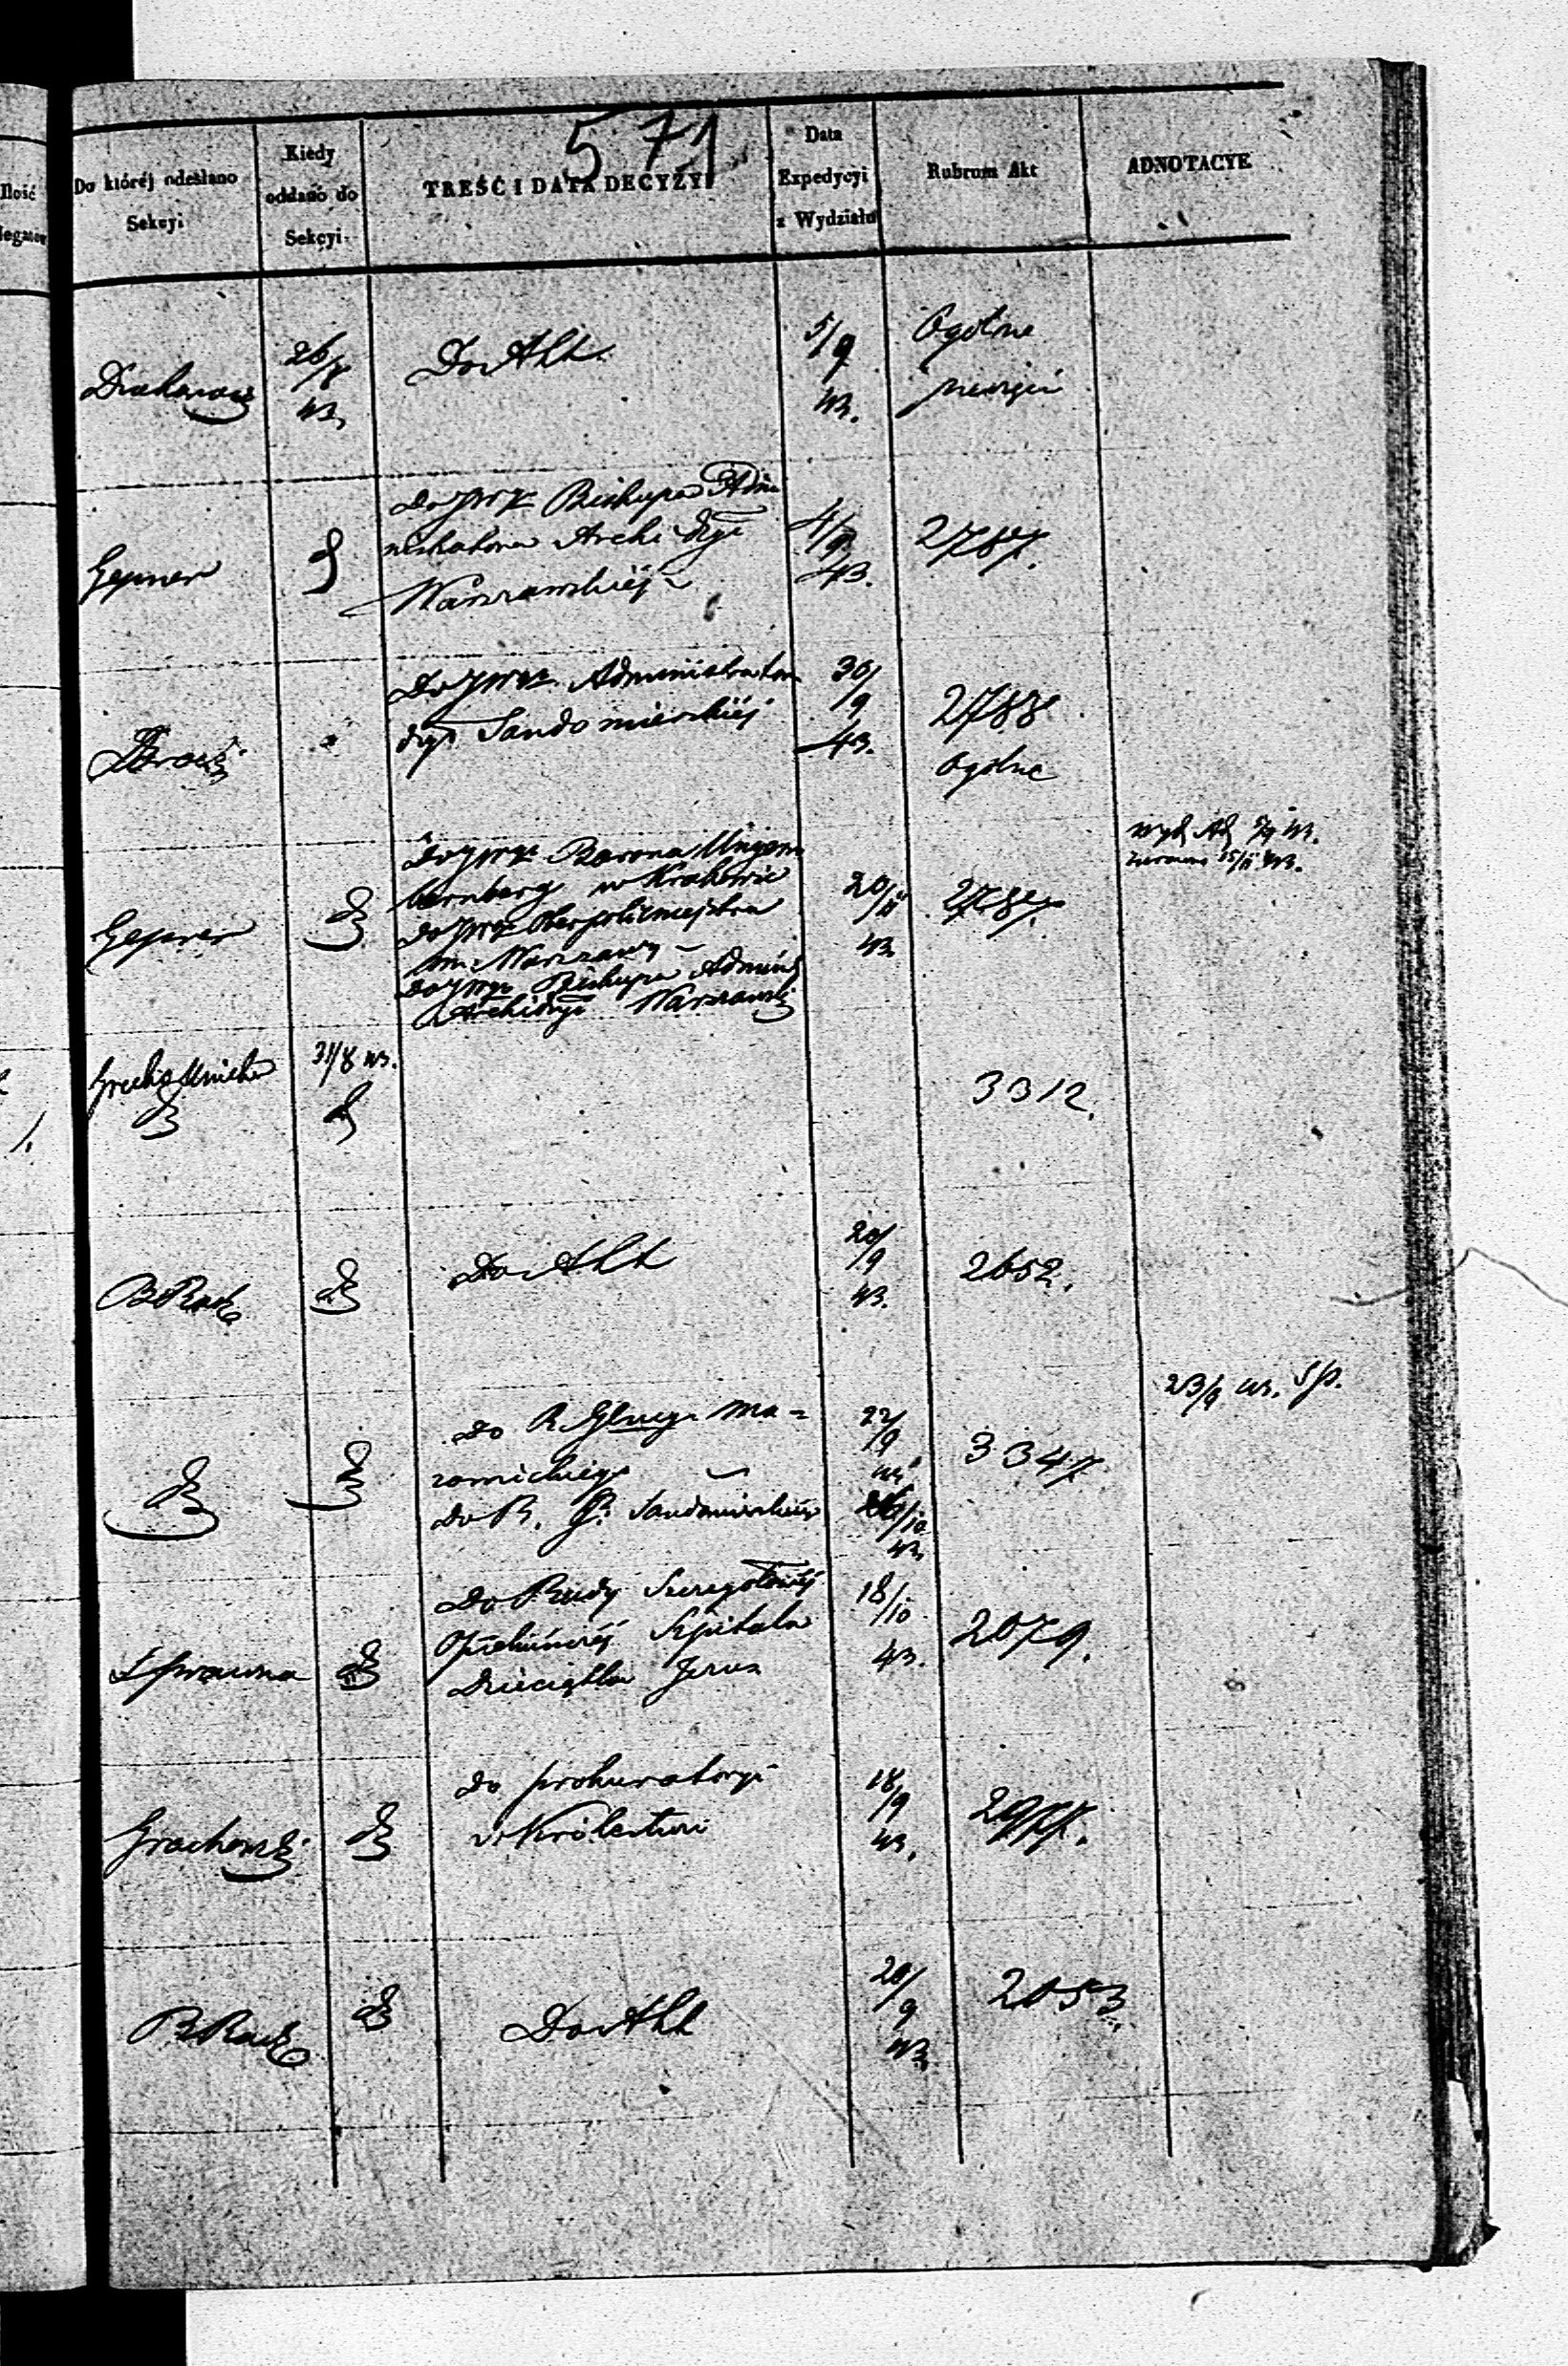 571
Ilość
Do któréj odesłano
Sekcyi
Kiedy
oddano do
Sekcyi
TREŚĆ I DATA DECYZYI
Data
Expedycyi
z Wydziału
Rubrum Akt
ADNOTACYE
26/8
43.
Do Akt
5/9
43.
Ogólne
Gepner
Do JWX Biskupa Admi
nistratora Archi Dyi
Warszawskiéj
4/9
43.
2787.
Do JWX. Administratora
dyi Sandomierskiéj
30/9
43.
2788
Ogólne
Gepner
Do JWgo Barona Ungern
Sternberg w Krakowie
Do JWgo Oberpolicmejstra
m. Warszawy
Do JWgo Biskupa Admin
Archidyi Warszawski
20/11
43
2787.
5/9 43.
15/11 43.
Grecko Unicka
31/8 43.
3312.
B Rad
Do Akt
20/9
43.
2652.
Do R. Glnego Ma-
zowickiego
Do R. G. Sandomierskiego
22/9
43
/10
43.
3347
23/9 43.
Sprawna
Do Rady Szczegółowéj
Opiekuńczéj Szpitala
Dzieciątka Jezus
18/10
43.
2079.
Grochowski
Do prokuratoryi
w Królestwie
18/9
43.
2977.
B Rad
Do Akt
20/9
43
2053.